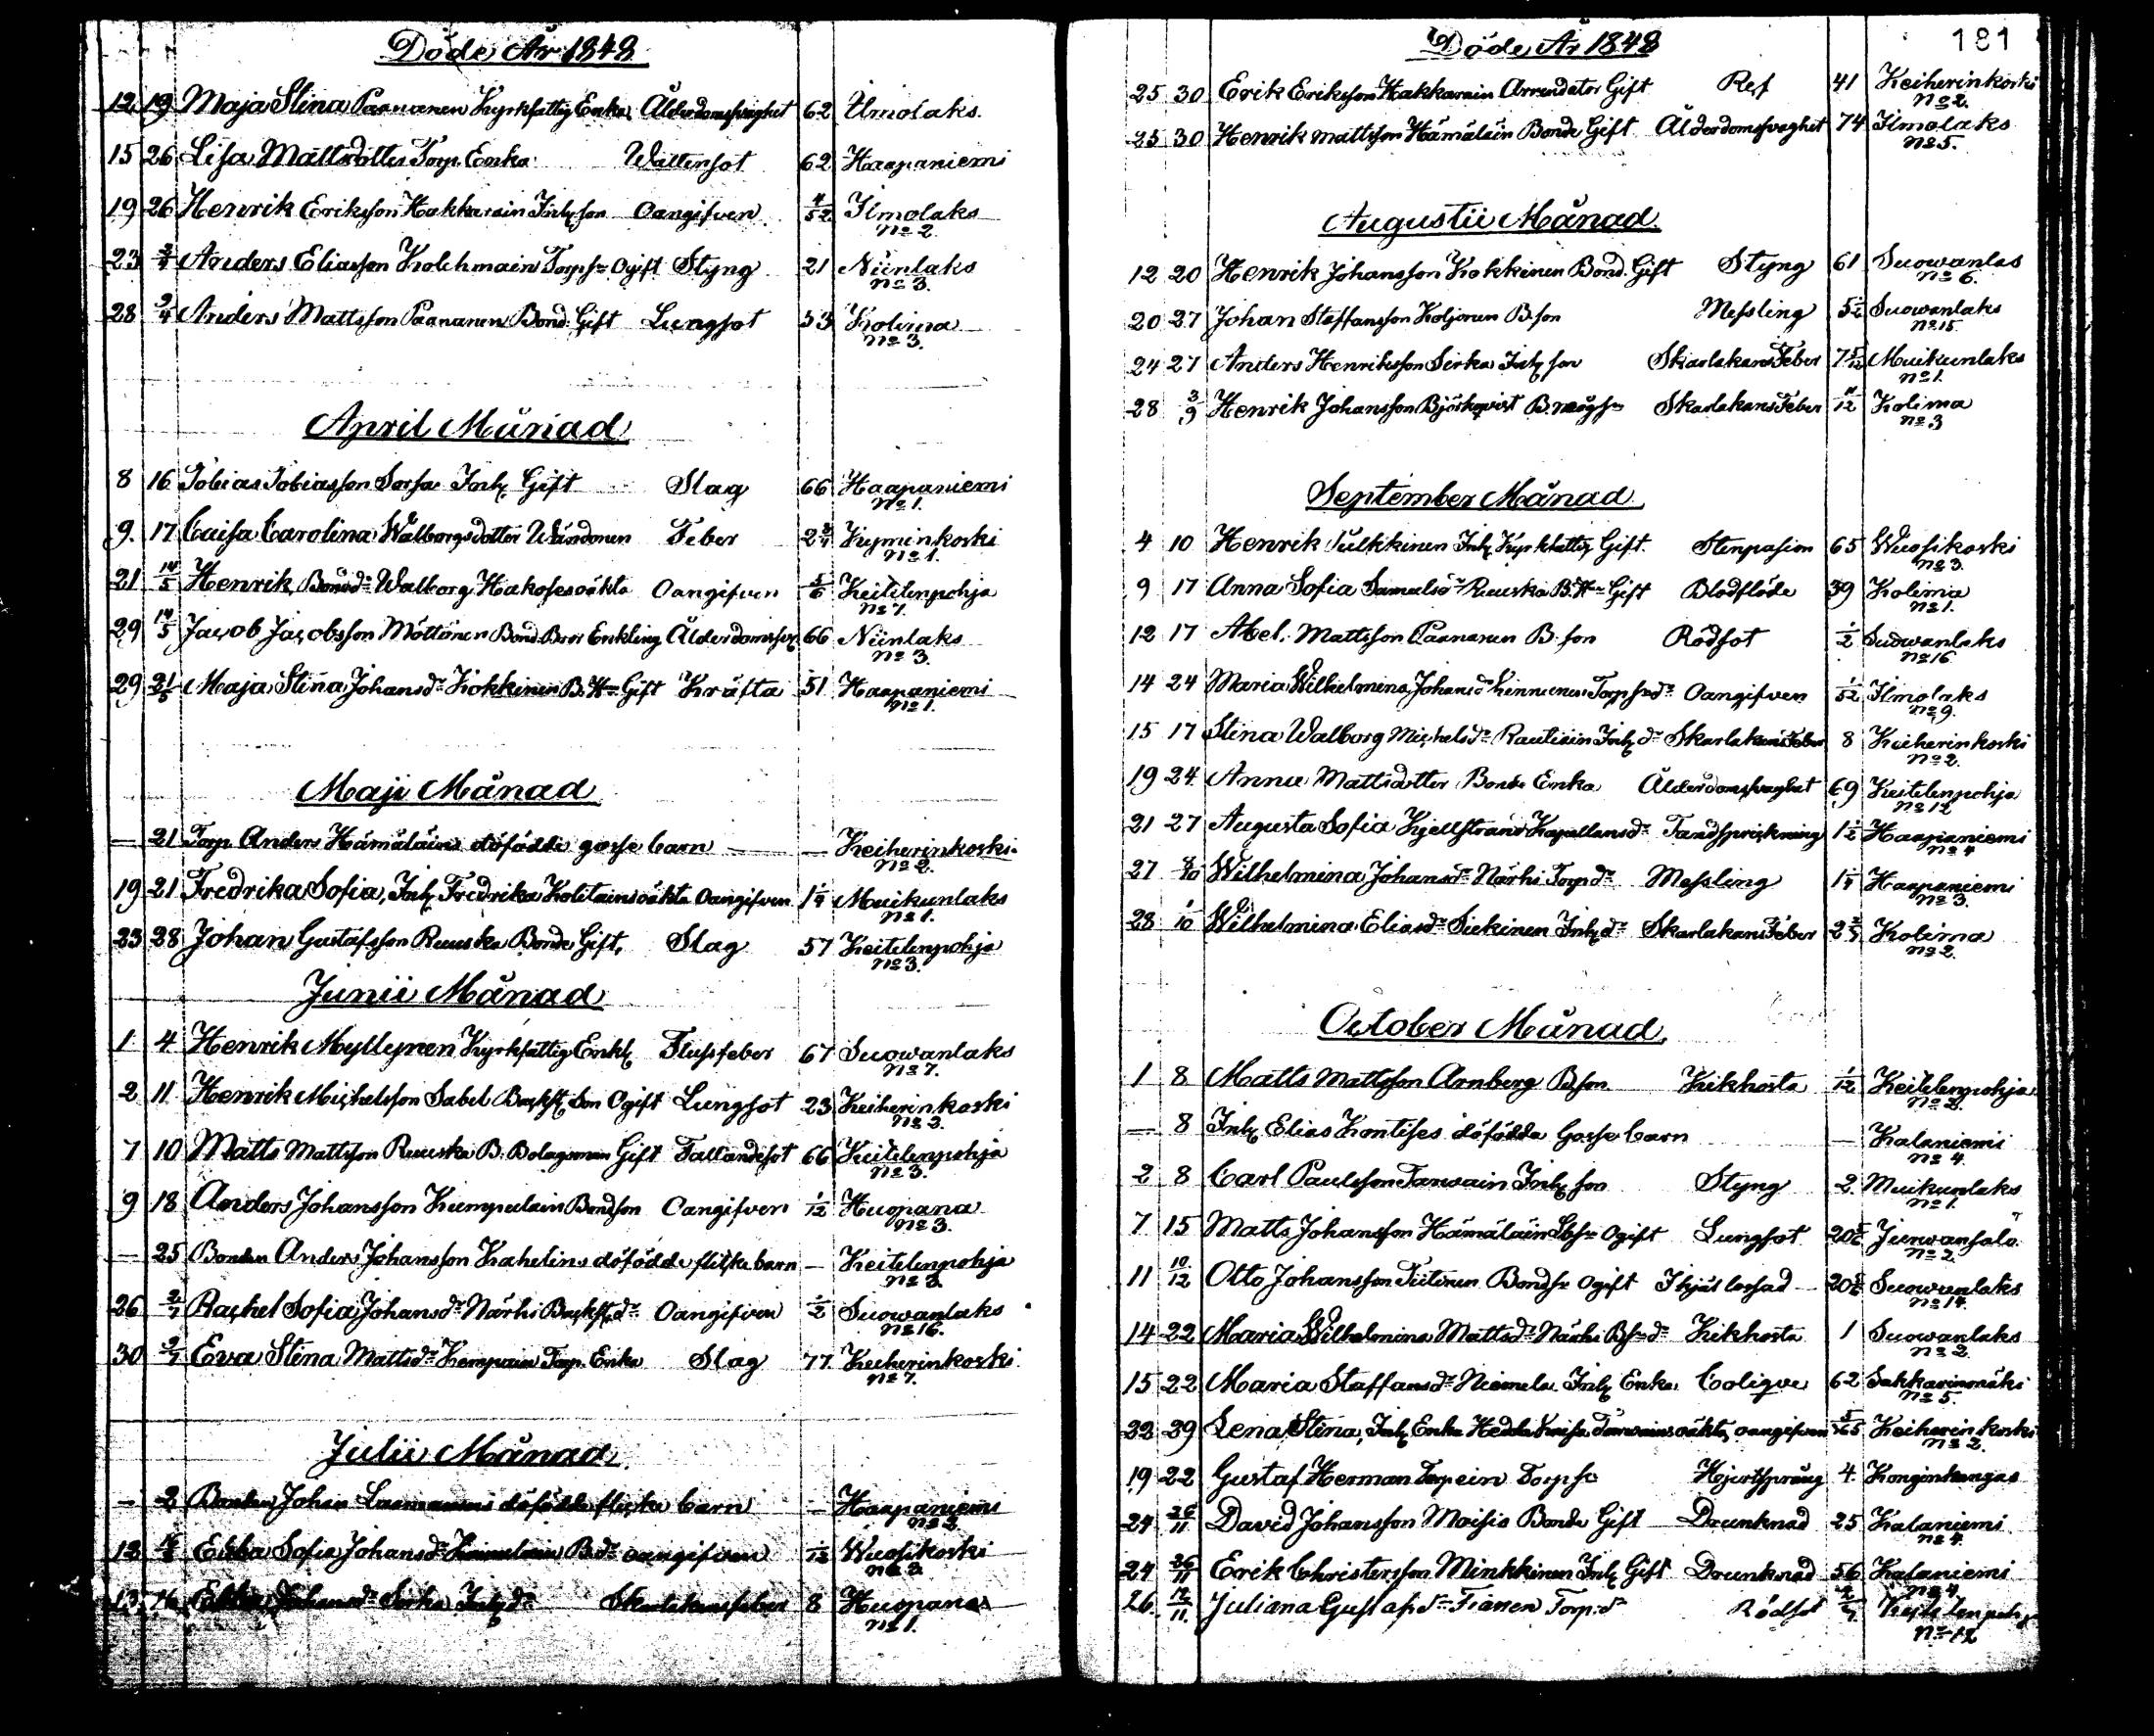 Döde År 1848
12 19 Maja Stina Paananen Kyrkfattig Enka Ålderdomsvaghet 62 Ilmolaks.
15 26 Lisa Mattsdotter Torp. Enka Wattensot 62 Haapaniemi
19 26 Henrik Eriksson Hakkarain Inh. son Oangifven 4/52 Ilmolaks
No 2.
23 2/4 Anders Eliasson Kolehmain Torpsn Ogift Styng 21 Niinlaks
No 3.
28 2/4 Anders Mattsson Paananen Bond. Gift Lungsot 53 Kolima
No 3.
April Månad
8 16 Tobias Tobiasson Sorsa Inh. Gift Slag 66 Haapaniemi
No 1.
9. 17 Caisa Carolina Walborgsdotter Feber Kyminkoski
No 1.
21 14/5 Henrik, Walborg Hakos oäkta Oangifven 5/6 Keitelenpohja
No 7.
29 14/5 Jacob Jacobsson Möttönen Bond. Bror Enkling Ålderdomssv. 66 Niinlaks
No 3.
29 21/5 Maja Stina Johansdr Kokkinen B. Hu Gift Kräfta 51 Haapaniemi
No 1.
Maji Månad
— 21 Torp. Anders Hämäläins döfödde gosse barn — — Keiherinkoski
No 2.
19 21 Fredrika Sofia, Inh. Fredrika oäkta Oangifven Muikunlaks
No 1.
23 28 Johan Gustafsson Ruuska Bonde Gift, Slag 57 Keitelenpohja
No 3.
Junii Månad
1 4 Henrik Myllynen Kyrkfattig Enkl. Flussfeber 67 Suowanlaks
No 7.
2 11 Henrik Michelsson Sabel Backst. Son Ogift Lungsot 23 Keiherinkoski
No 3.
7 10 Matts Mattsson Ruuska B. Bolagsman Gift Fallandesot 66 Keitelenpohja
No 3.
9 18 Anders Johansson Kumpulain Bondson Oangifven 1/12 Huopana
No 3.
— 25 Bonden Anders Johansson Kahelins döfödde flicke barn — Keitelenpohja
No 3.
26 2/7 Rachel Sofia Johansdr Närhi Backst. dr Oangifven 1/2 Suowanlaks
No 16.
30 9/7 Eva Stina Mattsdr Kempain Torp. Enka Slag 77. Keiherinkoski
No 7.
Julii Månad
— 2 Bonden Johan döfödde flicke barn — Haapaniemi
No 2.
Ebba Sofia Johansdr B. dr oangifven 1/12 Wuosikoski
No 2
13 16 Johansdr Sirka Inh. dr Skarlakansfeber 8 Huopana
No 1.
Döde År 1848
181
25 30 Erik Eriksson Hakkarain Arrendator Gift Ref 41 Keiherinkoski
No 2.
25 30 Henrik Mattsson Hämäläin Bonde Gift Ålderdomsvaghet 74 Ilmolaks
No 5.
Augustii Månad
12 20 Henrik Johansson Kokkinen Bond. Gift Styng 61 Suowanlas
No 6.
20 27 Johan Staffansson Koljonen B. son Messling 5 1/2 Suowanlaks
No 15.
24 27 Anders Henriksson Sirka Inh. son Skarlakans Feber 7 5/12 Muikunlaks
No 1.
28 3/9 Henrik Johansson Björkqvist B. mågsn Skarlakans Feber 11/12 Kolima
No 3
September Månad
4 10 Henrik Tulkkinen Inh. Kyrkfattig Gift. Stenpasion 65 Wuosikoski
No 3.
9 17 Anna Sofia Samuelsdr Ruuska B. Hu Gift Blodflöde 39 Kolima
No 1.
12 17 Abel. Mattsson Paananen B. son Rödsot 1/2 Suowanlaks
No 16
14 24 Maria Wilhelmina Johansdr Kinnunen Torpsn dr Oangifven 1/52 Ilmolaks
No 9.
15 17 Stina Walborg Michelsdr Rautiain Inh. dr Skarlakans Feber 8 Keiherinkoski
No 2.
19 24 Anna Mattsdotter Bonde Enka Ålderdomsvaghet 69 Keitelenpohja
No 12
21 27 Augusta Sofia Kjellstrand Kapellansdr Tandspräckning 1 1/2 Haapaniemi
No 4
27 8/10 Wilhelmina Johansdr Närhi Torp. dr Messling Haapaniemi
No 3.
28 1/10 Wilhelmina Eliasdr Siekinen Inh. dr Skarlakans Feber Kolima
No 2.
October Månad.
1 8 Matts Mattsson Arnberg B. son Kikhosta 1/12 Keitelenpohja
No 2.
— 8 Inh. Elias Kontises döfödda Gosse barn — Kalaniemi
No 4.
2 8 Carl Paulsson Tarwain Inh. son Styng 2. Muikunlaks
No 1.
7 15 Matts Johansson Hämäläin Ogift Lungsot Jurwansalo
No 2.
11 10/12 Otto Johansson Tiitinen Bondsn Ogift Ihjäl 20 Suowanlaks
No 14.
14 22 Maria Wilhelmina Mattsdr Närhi Bsn dr Kikhosta 1 Suowanlaks
No 2.
15 22 Maria Staffansdr Niemelä Inh. Enka Colique 62 Sakkarinmäki
No 5.
22 29 Lena Stina, Inh. Enka Hedda Tarwains oäkta, oangifven Keiherinkoski
No 2.
19 22 Gustaf Herman Torpsn 4. Konginkangas
24 26/11 David Johansson Moisio Bonde Gift Drunknad 25 Kalaniemi
No 4.
24 26/11 Erik Christersson Minkkinen Inh. Gift Drunknad 56 Kalaniemi
No 4
26 12/11. Juliana Gustafsdr Torp. dr Rödsot Keitelenpohja
No 12